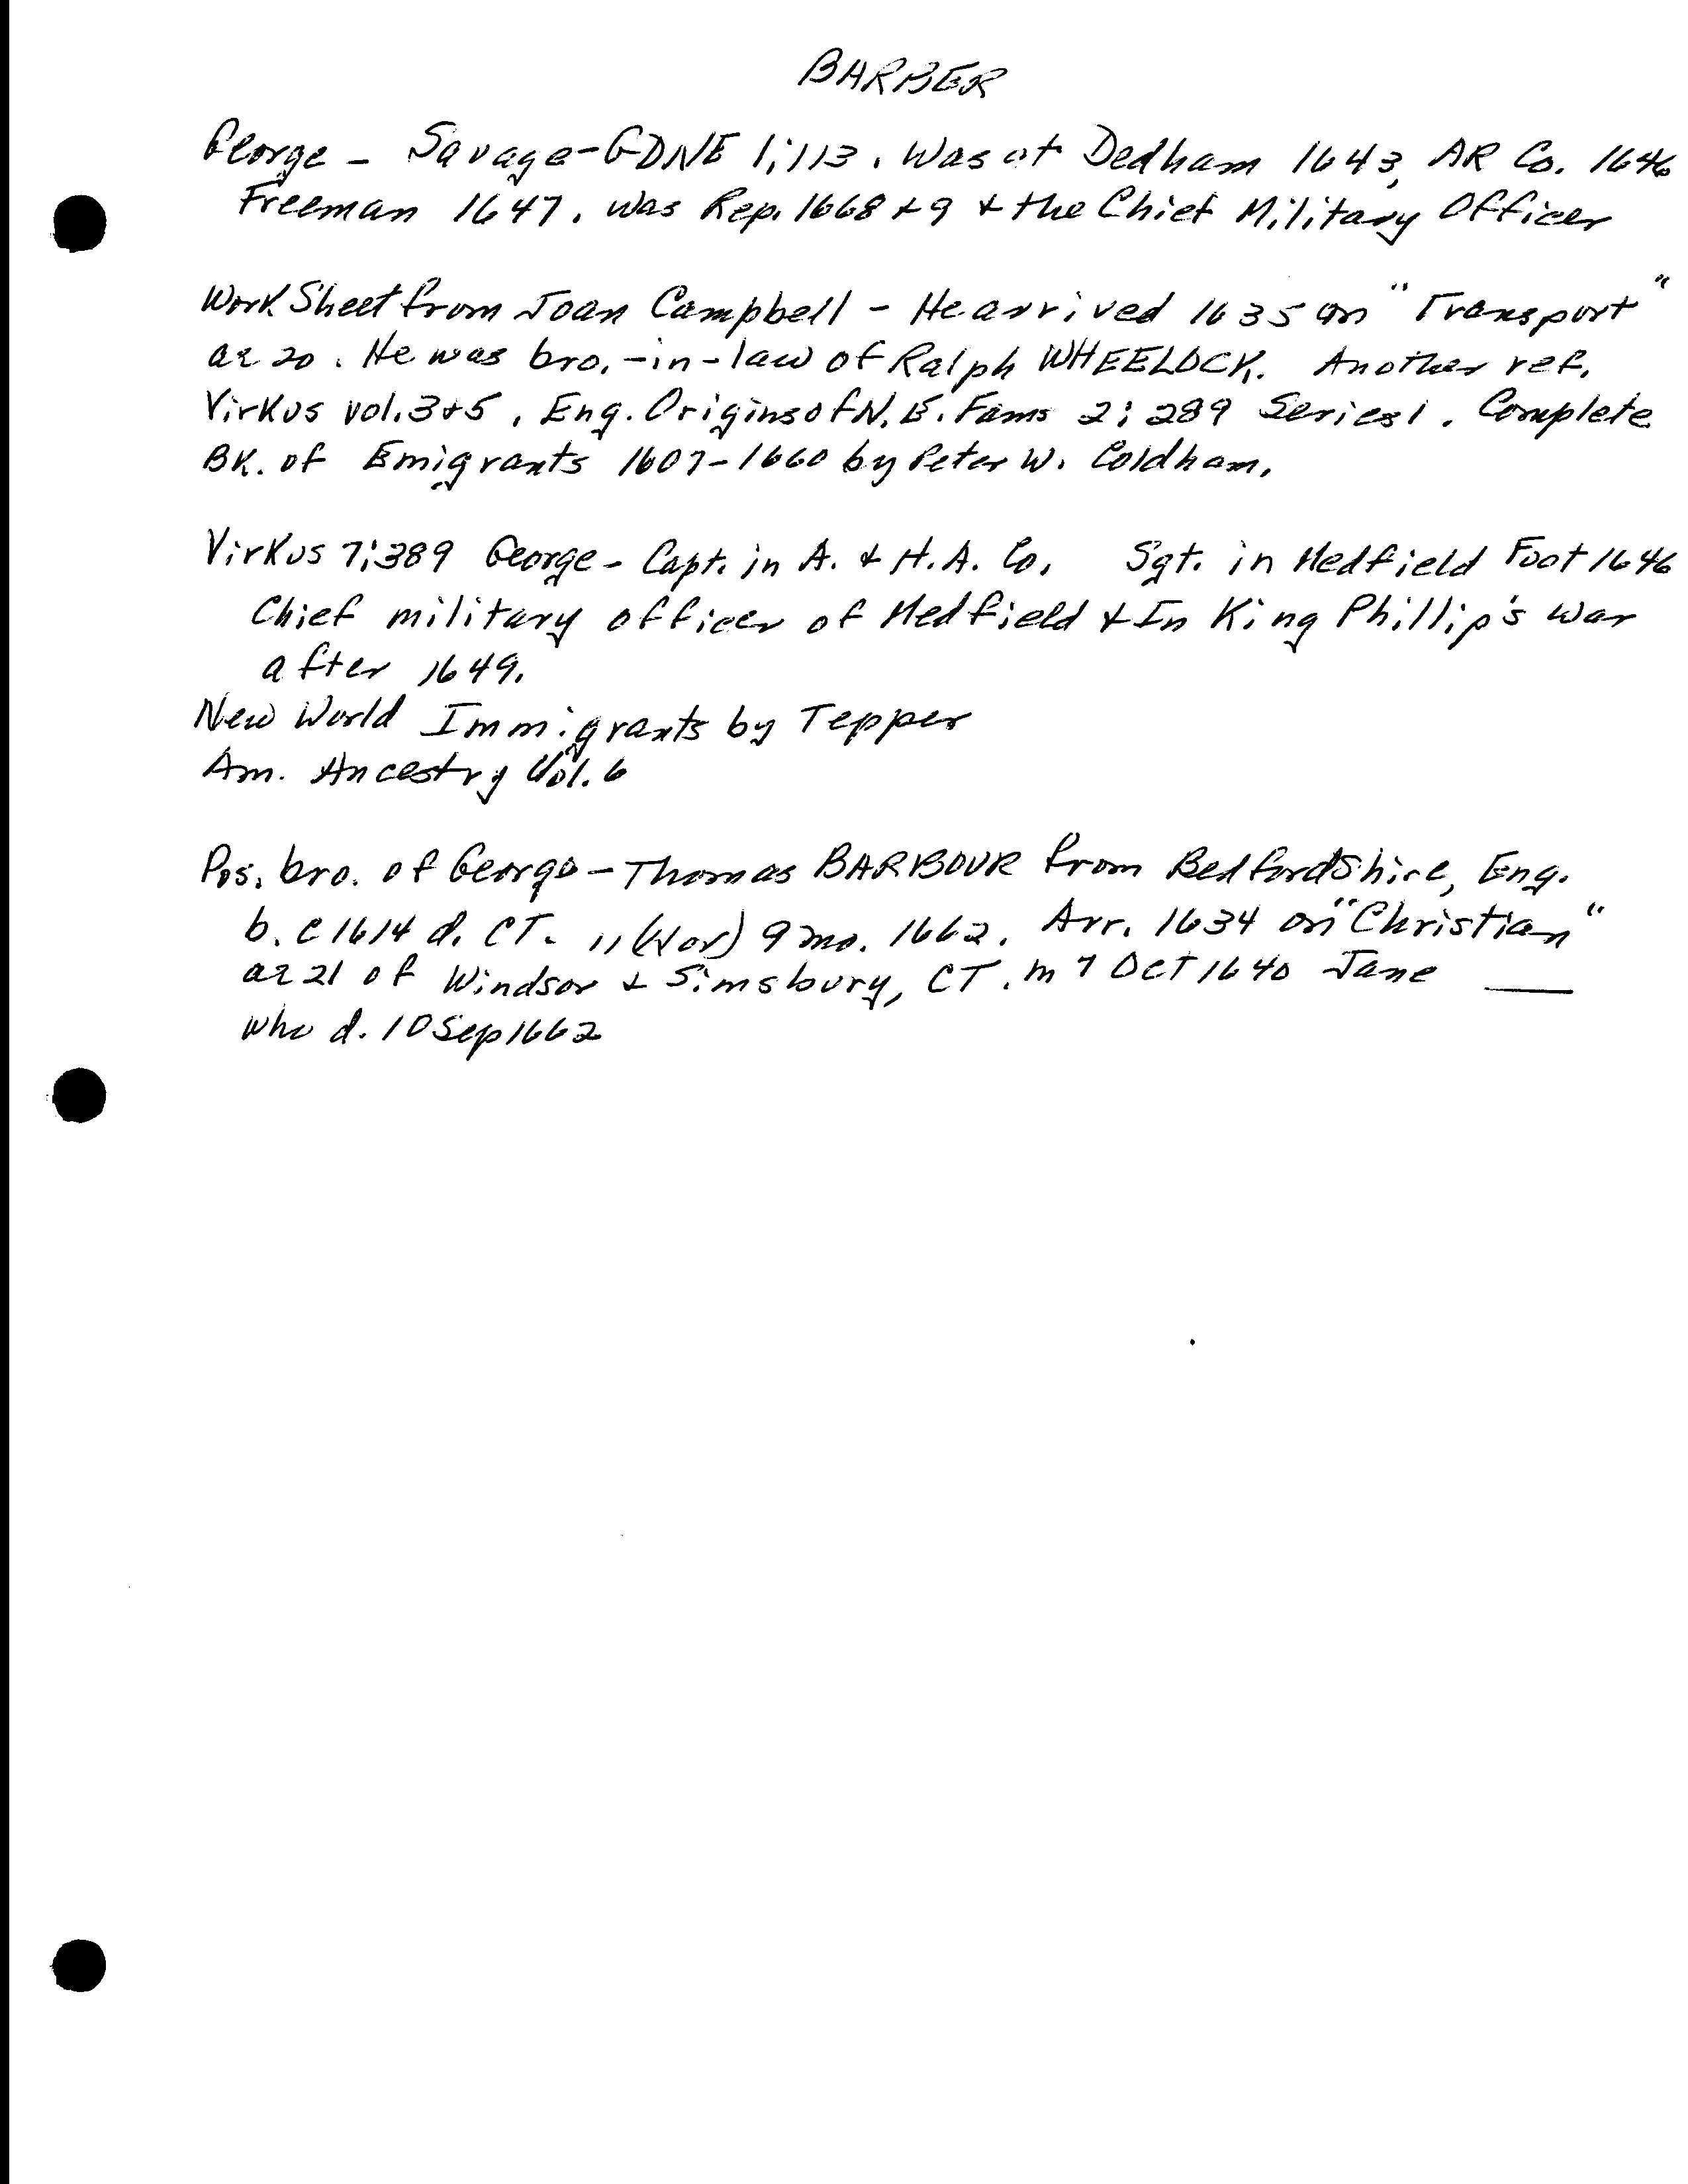 BARBER
George - Savage-GDNE 1;113. Was at Dedham 1643, AR Co. 1646
Freeman 1647. Was Rep. 1668 & 9 & the Chief Military Officer
Work Sheet from Joan Campbell - He arrived 1635 on "Transport"
ae 20. He was bro.-in-law of Ralph WHEELOCK. Another ref.
Virkus vol. 3&5, Eng. Origins of N.E. Fams 2:289 Series 1. Complete
BK. of Emigrants 1607-1660 by Peter W. Coldham.
Virkus 7:389 George - Capt. in A. & H.A. Co. Sgt. in Medfield Foot 1646
Chief military officer of Medfield & In King Phillip's War
after 1649.
New World Immigrants by Tepper
Am. Ancestry Vol. 6
Pos. bro. of George - Thomas BARBOUR from Bedfordshire, Eng.
b. c 1614 d. CT. 11 ( or) 9 mo. 1662. Arr. 1634 on "Christian"
ae 21 of Windsor & Simsbury, CT. m 7 Oct 1640 Jane ____
who d. 10 Sep 1662